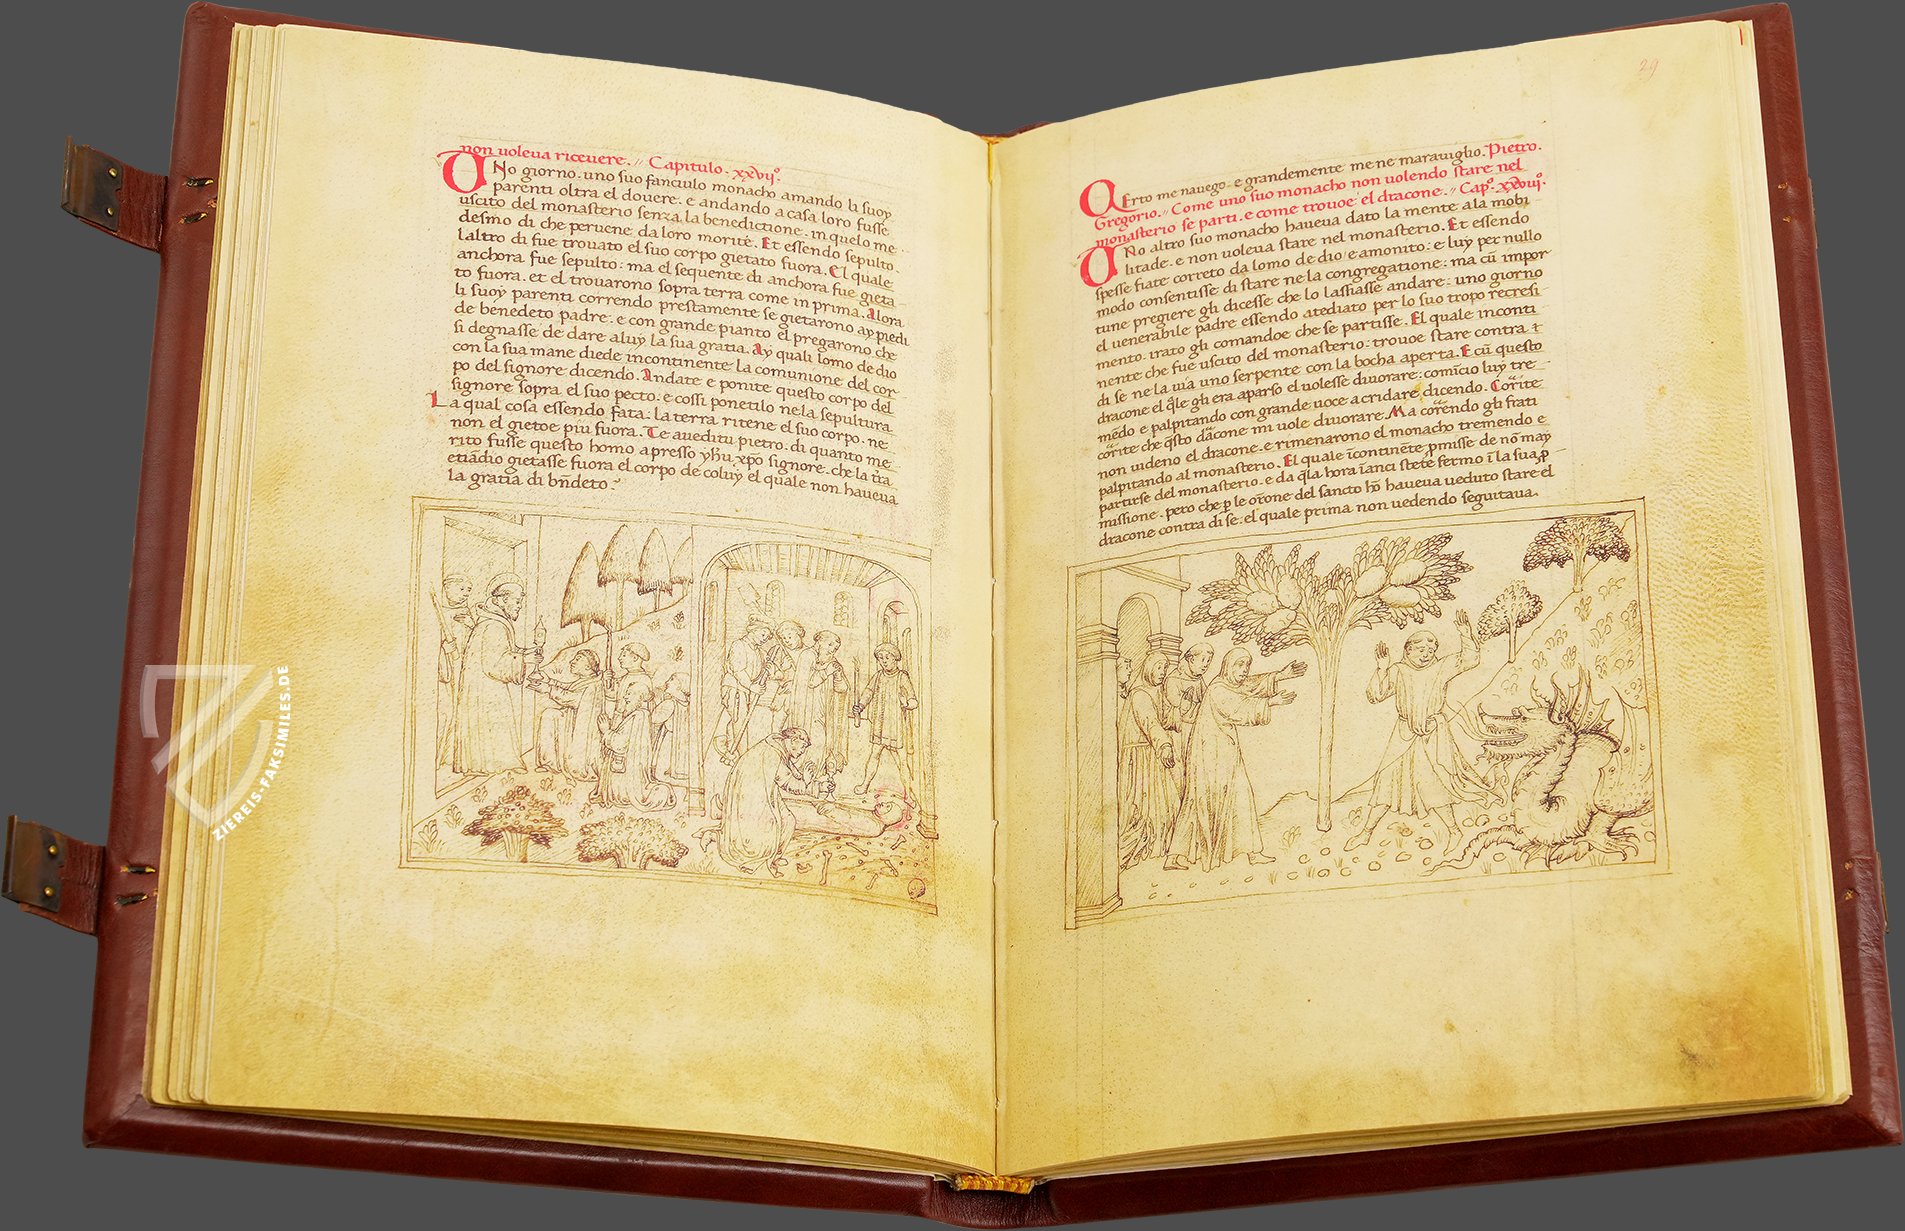 non voleva ricevere. // Capitulo. xxvijº.
UNo giorno. uno suo fanciulo monacho amando li suoy
parenti oltra el dovere. e andando a casa loro fusse
uscito del monasterio senza la benedictione. in quelo me
desmo di che pervene da loro morite. Et essendo sepulto.
laltro di fue trovato el suo corpo gietato fuora. El quale
anchora fue sepulto: ma el sequente di anchora fue gieta
to fuora. et el trovarono sopra terra come in prima. Alora
li suoy parenti correndo prestamente se gietarono ay piedi
de benedeto padre. e con grande pianto el pregarono che
si degnasse de dare aluy la sua gratia. Ay quali lomo de dio
con la sua mane diede incontinente la comunione del cor
po del signore dicendo. Andate e ponite questo corpo del
signore sopra el suo pecto. e cossi ponetilo nela sepultura
La qual cosa essendo fata: la terra ritene el suo corpo. ne
non el gietoe piu fuora. Te aveditu pietro. di quanto me
rito fusse questo homo apresso yħu xp̄o signore. che la tr̄a
etiādio gietasse fuora el corpo de coluy el quale non haveva
la gratia di bn̄deto.
29
CErto me navego. e grandemente me ne maraviglio. Pietro.
Gregorio. // Come uno suo monacho non volendo stare nel
monasterio se parti. e come trovoe el dracone. // Capº. xxviijº.
UNo altro suo monacho haveva dato la mente ala mobi
litade. e non voleva stare nel monasterio. Et essendo
spesse fiate correto da lomo de dio e amonito: e luy per nullo
modo consentisse di stare ne la congregatione: ma cū impor
tune pregiere gli dicesse che lo lassiasse andare: uno giorno
el venerabile padre essendo atediato per lo suo tropo recresi
mento. irato gli comandoe che se partisse. El quale inconti
nente che fue uscito del monasterio: trovoe stare contra
di se ne la via uno serpente con la bocha aperta. E cū questo
dracone el q̄le gli era aparso el volesse divorare: comīcio luy tre
mēdo e palpitando con grande voce a cridare dicendo. Corite
corite che q̄sto dracone mi vole divorare. Ma corēndo gli frati
non videno el dracone. e rimenarono el monacho tremendo e
palpitando al monasterio. El quale īcontinēte pmisse de nō may
partirse del monasterio. e da q̄la hora īanci stete fermo ī la sua p
missione. pero che p le orōne del sancto hō haveva veduto stare el
dracone contra di se. el quale prima non vedendo seguitava.
ZIEREIS-FAKSIMILES.DE